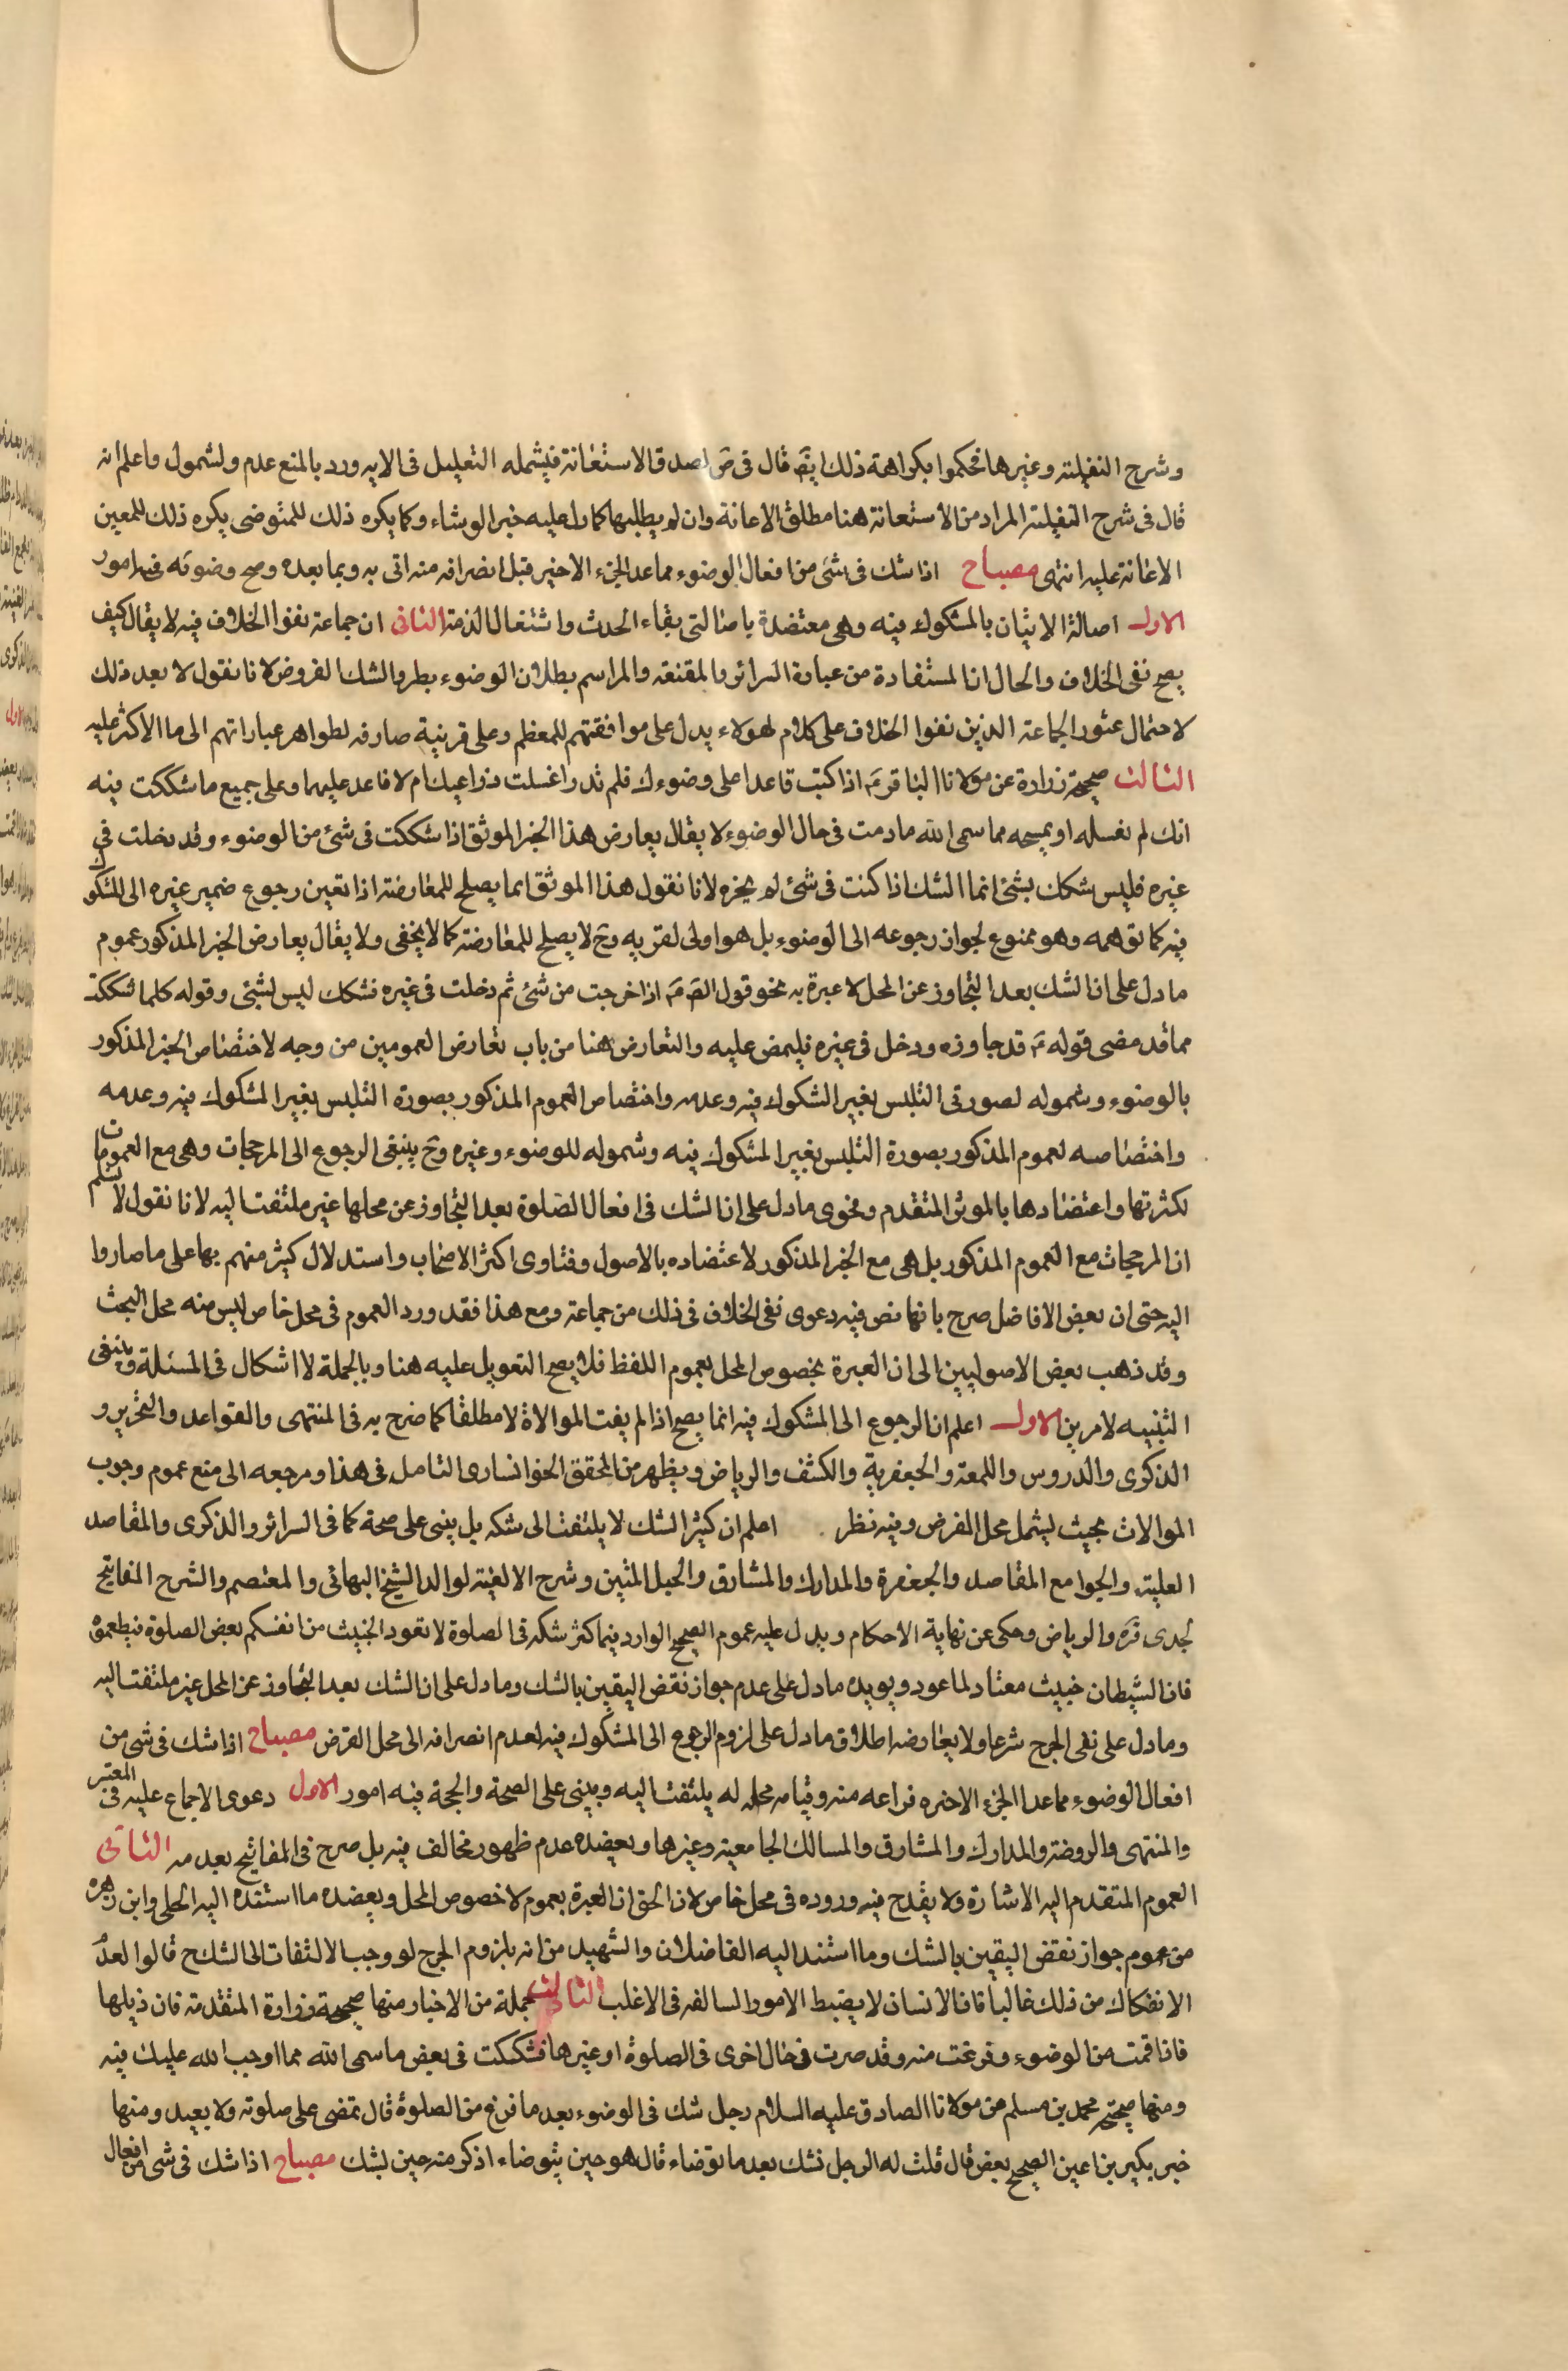 وشرح النفلية وغيرها فحكموا بكراهة ذلك ايضا قال فى ض لصدق الاستعانة فيشمله التعليل فى الايه ورد بالمنع عدم ولشمول واعلم انه
قال فى شرح النفلية المراد من الاستعانة هنا مطلق الاعانة وان لم يطلبها كما دل عليه خبر الوشاء وكما يكره ذلك للمتوضى يكره ذلك للمعين
الاعانة عليه انتهى مصباح اذا شك فى شئ من افعال الوضوء مما عدا الجزء الاخير قبل انصرافه منه اتى به وبما بعده وصح وضوئه فيه امور
الاول اصالة الاتيان بالمشكوك فيه وهى معتضدة باصالتى بقاء الحدث واشتغال الذمة الثانى ان جماعة نفوا الخلاف فيه لا يقال كيف
يصح نفى الخلاف والحال ان المستفادة من عبارة السرائر والمقنعه والمراسم بطلان الوضوء بطرو الشك لفروض لانا نقول لا بعد ذلك
لاحتمال عثور الجماعة الذين نفوا الخلاف على كلام لهولاء يدل على موافقتهم للمعظم وعلى قرينة صارفه لظواهر عباراتهم الى ما الاكثر عليه
الثالث صحيحة زرارة عن مولانا الباقر ع اذا كنت قاعدا على وضوءك فلم تدر اغسلت ذراعيك ام لا فاعد عليهما وعلى جميع ما شككت فيه
انك لم تغسله او تمسحه مما سمى الله ما دمت فى حال الوضوء لا يقال يعارض هذا الخبر الموثق اذا شككت فى شئ من الوضوء وقد دخلت فى
غيره فليس شكك بشئ انما الشك اذا كنت فى شئ لم تجزه لانا نقول هذا الموثق انما يصلح للمعارضة اذا تعين رجوع ضمير غيره الى المشكوك
فيه كما توهمه وهو ممنوع لجواز رجوعه الى الوضوء بل هو اولى لقربه وح لا يصلح للمعارضة كما لا يخفى ولا يقال يعارض الخبر المذكور عموم
ما دل على ان الشك بعد التجاوز عن المحل لا عبرة به نحو قول الص ع اذا خرجت من شئ ثم دخلت فى غيره فشكك ليس بشئ وقوله كلما شككت
مما قد مضى قوله ع قد جاوزه ودخل فى غيره فليمض عليه والتعارض هنا من باب تعارض العمومين من وجه لاختصاص الخبر المذكور
بالوضوء وشموله لصورتى التلبس بغير الشكوك فيه وعدمه واختصاص العموم المذكور بصورة التلبس بغير المشكوك فيه وعدمه
واختصاصه لعموم المذكور بصورة التلبس بغير المشكوك فيه وشموله للوضوء وغيره وح ينبغى الرجوع الى المرجحات وهى مع العمومات
لكثرتها واعتضادها بالموثق المتقدم وفحوى ما دل على ان الشك فى افعال الصلوة بعد التجاوز عن محلها غير ملتفت اليه لانا نقول لا نسلم
ان المرجحات مع العموم المذكور بل هى مع الخبر المذكور لاعتضاده بالاصول وفتاوى اكثر الاصحاب واستدلال كثير منهم بها على ما صاروا
اليه حتى ان بعض الافاضل صرح بانها نص فيه دعوى نفى الخلاف فى ذلك من جماعة ومع هذا فقد ورد العموم فى محل خاص ليس منه محل البحث
وقد ذهب بعض الاصوليين الى ان العبرة بخصوص المحل بعموم اللفظ فلا يصح التعويل عليه هنا وبالجملة لا اشكال فى المسئلة وينبغى
التنبيه لامرين الاول اعلم ان الرجوع الى المشكوك فيه انما يصح اذا لم يفت الموالاة لا مطلقا كما صرح به فى المنتهى والقواعد والتحرير و
الذكرى والدروس واللمعة والجعفرية والكشف والرياض ويظهر من المحقق الخوانسارى التامل فى هذا ومرجعه الى منع عموم وجوب
الموالات بحيث يشمل محل الفرض وفيه نظر اعلم ان كثير الشك لا يلتفت الى شكه بل يبنى على صحة كما فى السرائر والذكرى والمقاصد
العلية والجوامع المقاصد والجعفرة والمدارك والمشارق والحبل المتين وشرح الالفية لوالد الشيخ البهائى والمعتصم والشرح المفاتيح
لجدى قره والرياض وحكى عن نهاية الاحكام ويدل عليه عموم الصحيح الوارد فيما كثر شكه فى الصلوة لا تعود الخبيث من انفسكم بعض الصلوة فتطعموه
فان الشيطان خبيث معتاد لما عود ويويده ما دل على عدم جواز نقض اليقين بالشك وما دل على ان الشك بعد التجاوز عن المحل غير ملتفت اليه
وما دل على نفى الحرج شرعا ولا يعارضه اطلاق ما دل على لزوم الرجوع الى المشكوك فيه لعدم انصرافه الى محل الفرض مصباح اذا شك فى شئ من
افعال الوضوء مما عدا الجزء الاخره فراعه منه وقيامه محله له يلتفت اليه ويبنى على الصحة والحجة فيه امور الاول دعوى الاجماع عليه فى المعتبر
والمنتهى والروضة والمدارك والمشارق والمسالك الجامعية وغيرها ويعضده عدم ظهور مخالف فيه بل صرح فى المفاتيح بعدمه الثانى
العموم المتقدم اليه الاشارة ولا يقدح فيه وروده فى محل خاص لان الحق ان العبرة بعموم لا خصوص المحل ويعضده ما استنده اليه الحلى وابن زهره
من عموم جواز نقض اليقين بالشك وما استند اليه الفاضلان والشهيد من انه يلزوم الحرج لو وجب الالتفات الى الشك ح قالوا لعدم
الانفكاك من ذلك غالبا فان الانسان لا يضبط الامور السالفه فى الاغلب الثالث جملة من الاخبار منها صحيحة زرارة المتقدمة فان ذيلها
فاذا قمت من الوضوء وفرغت منه وقد صرت فى حال اخرى فى الصلوة او غيرها فشككت فى بعض ما سمى الله مما اوجب الله عليك فيه
ومنها صحيحة محمد بن مسلم عن مولانا الصادق عليه السلام رجل شك فى الوضوء بعد ما فرغ من الصلوة قال تمضى على صلوته ولا يعيد ومنها
خبر بكير بن اعين الصحيح بعض قال قلت له الرجل نشك بعد ما توضاء قال هو حين يتوضاء اذكر منه حين يشك مصباح اذا شك فى شئ من افعال